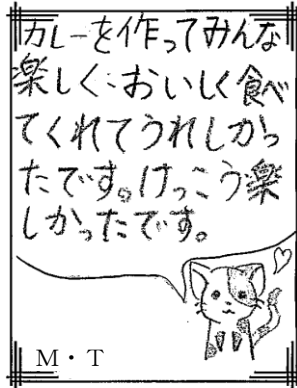 カレーを作ってみんな
楽しく:おいしく食べ
てくれてうれしかっ
たです。けっこう楽
しかったです。
M・T